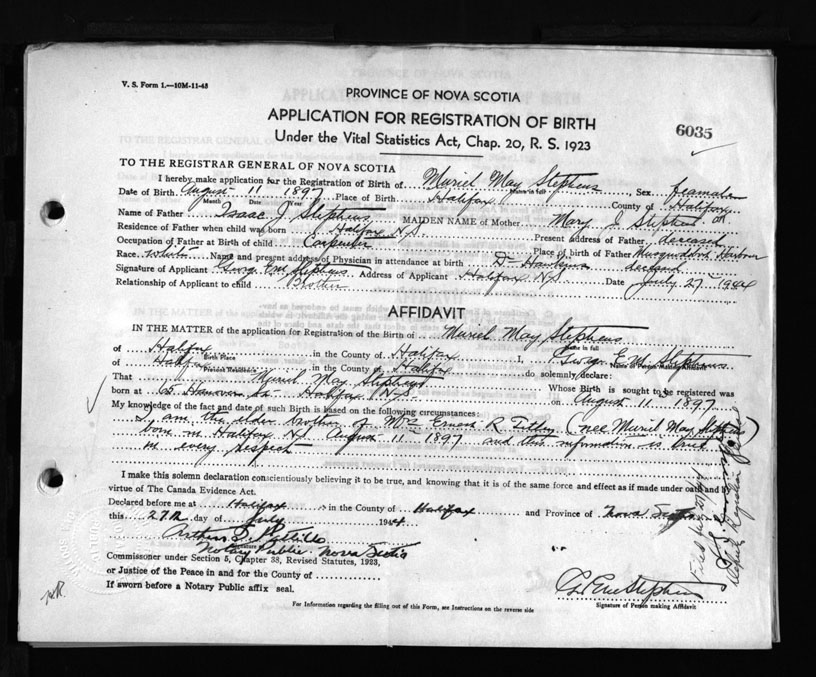 V. S. Form 1.—10M-11-43
PROVINCE OF NOVA SCOTIA
APPLICATION FOR REGISTRATION OF BIRTH
6035
Under the Vital Statistics Act, Chap. 20, R. S. 1923
TO THE REGISTRAR GENERAL OF NOVA SCOTIA
I hereby make application for the Registration of Birth of Muriel May Stephens Sex
Date of Birth August 11 1897 Place of Birth Halifax County of Halifax
Month Date Year
Name of Father Isaac J. Stephens MAIDEN NAME of Mother Mary J Stephens
Residence of Father when child was born Halifax N.S. Present address of Father deceased
Occupation of Father at Birth of child Carpenter Place of birth of Father Musquodoboit Harbour
Race white Name and present address of Physician in attendance at birth Dr Hawkins deceased
Signature of Applicant George E M Stephens Address of Applicant Halifax N.S. Date July 27 - 1944
Relationship of Applicant to child Brother
AFFIDAVIT
IN THE MATTER of the application for Registration of the Birth of Muriel May Stephens
Name in full
of Halifax in the County of Halifax I, George E. M. Stephens
Birth Place Name of Person Making Affidavit
of Halifax in the County of Halifax do solemnly declare:
Present Residence
That Muriel May Stephens Whose Birth is sought to be registered was
born at 65 St. Halifax N.S. on August 11 1897.
My knowledge of the fact and date of such Birth is based on the following circumstances:
I am the elder brother of Mrs Ernest R (nee Muriel May Stephens)
born in Halifax N.S. August 11 - 1897 and this information is true
in every respect
I make this solemn declaration conscientiously believing it to be true, and knowing that it is of the same force and effect as if made under oath and by
virtue of The Canada Evidence Act.
Declared before me at Halifax in the County of Halifax and Province of Nova Scotia
this 27th day of July 1944
Arthur S. Pattillo
Notary Public Nova Scotia
Commissioner under Section 5, Chapter 38, Revised Statutes, 1923,
or Justice of the Peace in and for the County of
If sworn before a Notary Public affix seal.
G E M Stephens
Signature of Person making Affidavit
For Information regarding the filling out of this Form, see Instructions on the reverse side
Deputy Registrar